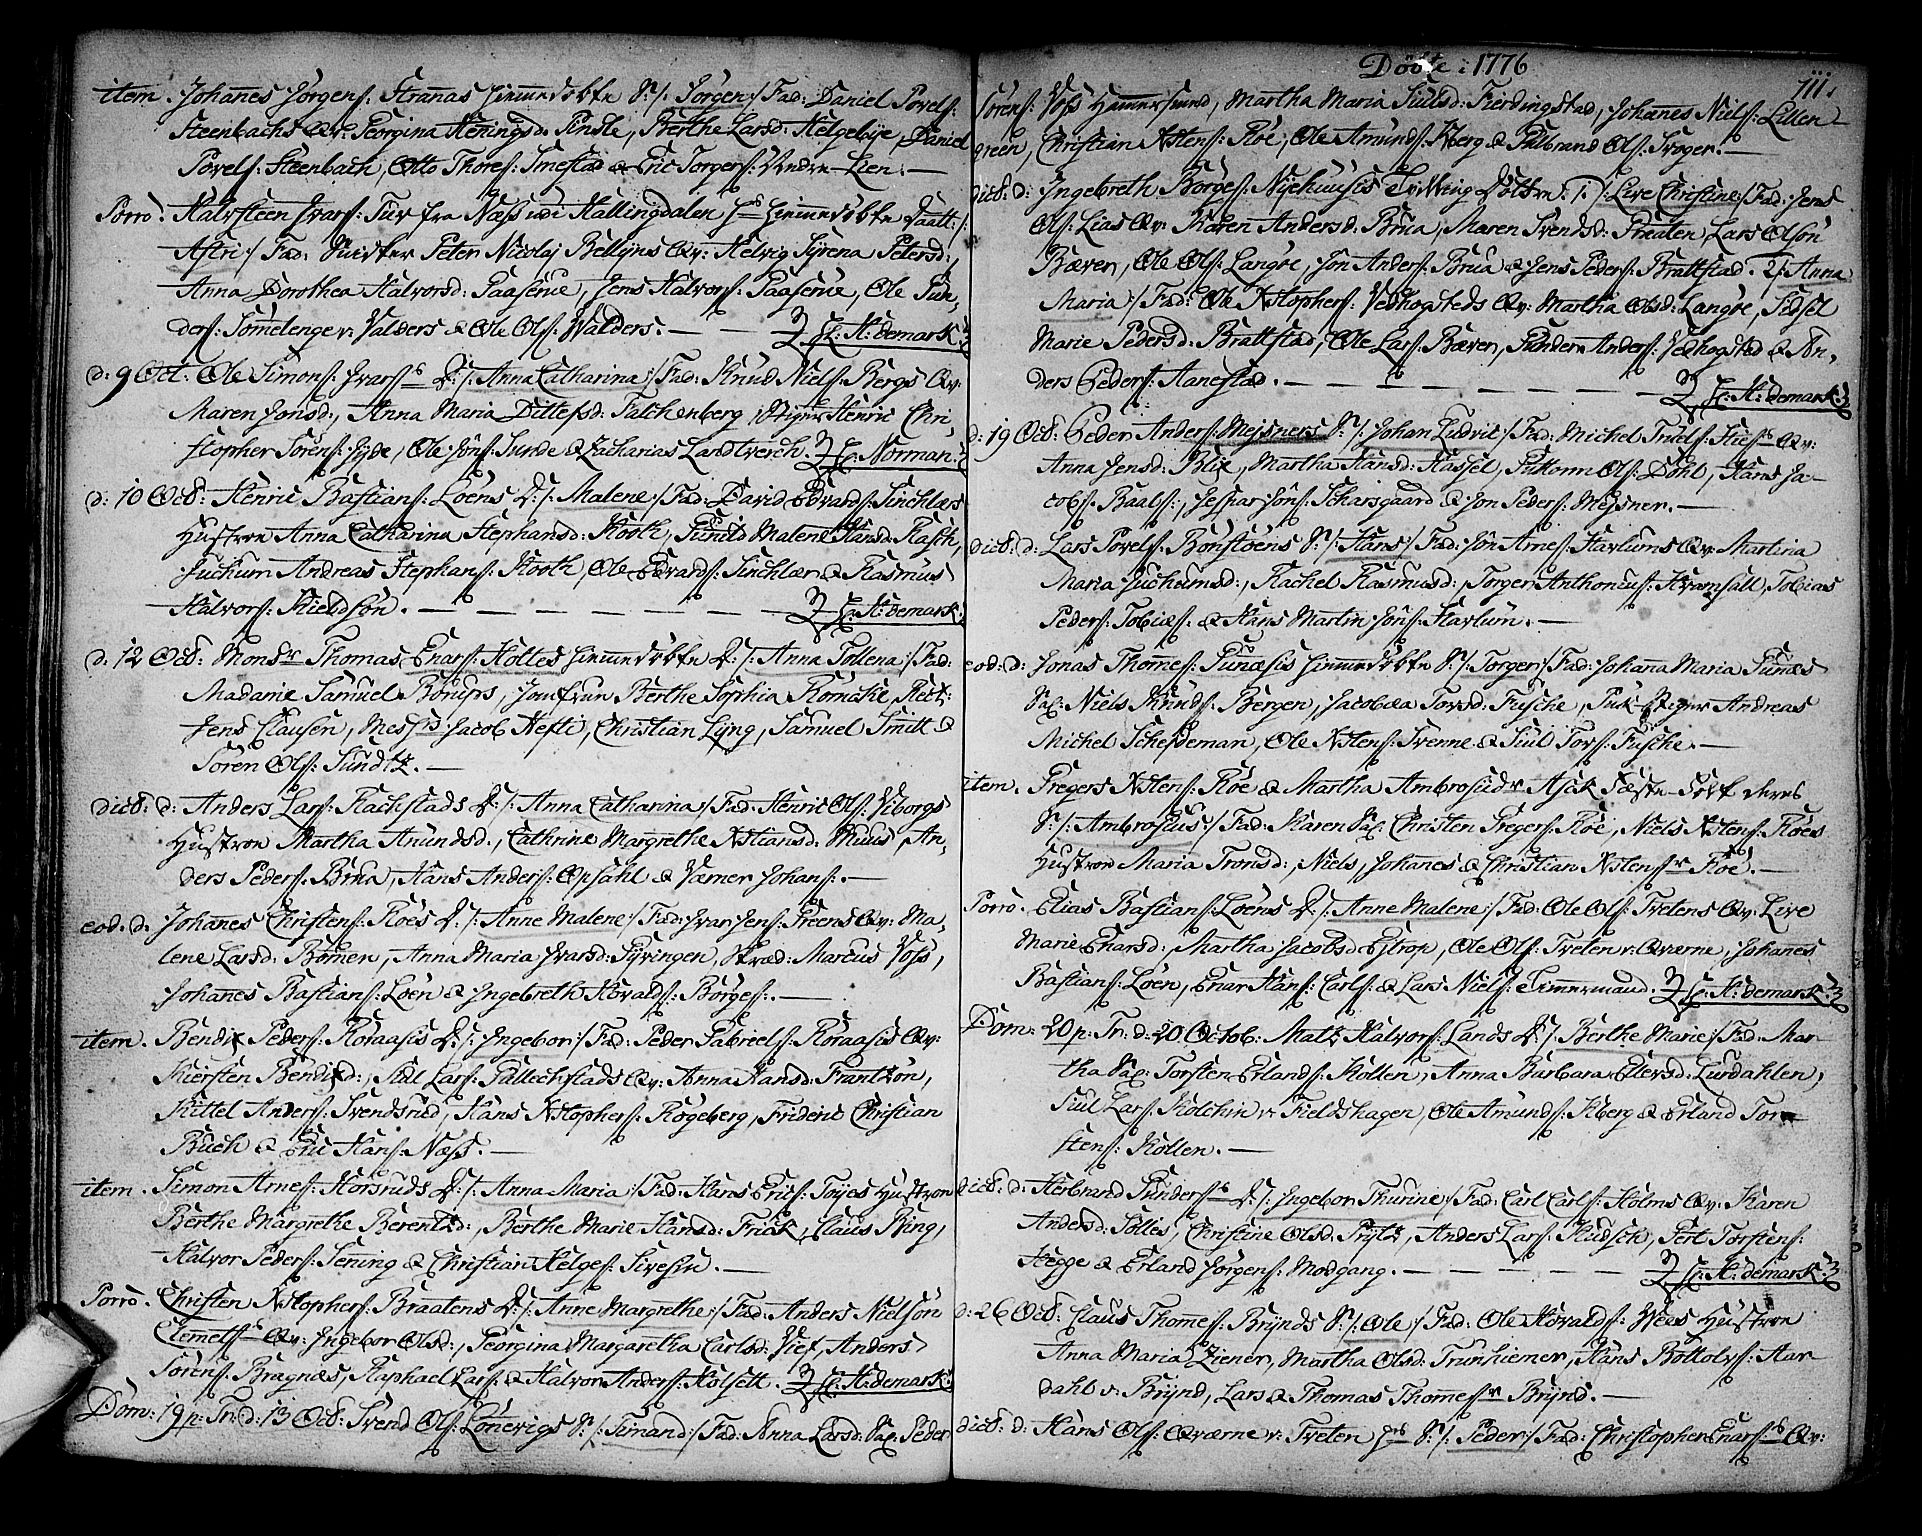 item. Johannes Jørgens: Stranas hiemmedøbte S:/: Jørgen:/ Fad: Daniel Povels:
Steenbachs Qv: Georgina Heningsd: Pinsle, Berthe Larsd: Helgebÿe, Daniel
Povels: Steenbach, Otto Thores: Smestad & Eric Torgers: Lien.
Porro. Halvsteen Ivars: Tuv fra Næss udi Hallingdalen hiemmedøbte Daatt:/:
Astri:/ Fad: Peter Nicolaj Bellÿns Qv: Helvig Sÿrena Petersd:,
Anna Dorothea Halvorsd: Paaserüe, Jens Halvors: Paaserüe, Ole Gun-
ders: Sømelenge v: Valders & Ole Ols: Walders. Hr: H:demark:
d: 9 Oct: Ole Simons: Ivars: D:/: Anna Catharina:/ Fad: Knud Niels: Bergs Qv:
Maren Jonsd:, Anna Maria Ditlefsd: Falchenberg, Stiger Henric Chri-
stopher Sørens: Hÿde, Ole Jøns: Sunde & Zacharias Landtverch. Hr: Norman:
d: 10 Oct: Henric Bastians: Loens D:/: Malene:/ Fad: David Edvards: Sinchlars
Hustroe Anna Catharina Stephansd: Kooth, Gunild Malene Hansd: Rasch,
Juchum Andreas Stephans: Kooth, Ole Edvards: Sinchlær & Rasmus
Halvors: Kieldsøn. Hr: H:demark:
d: 12 Oct: Monsr Thomas Enars: Holtes hiemmedøbte D:/: Anna Tollena:/ Fad:
Madame Samuel Bonups, Jomfrue Berthe Sophia Romcke, Rect:
Jens Clausen, Messrs Jacob Hefti, Christian Lÿng, Samuel Smitt &
Søren Ols: Sundtz.
dict: d: Anders Lars: Rachstads D:/: Anna Catharina:/ Fad: Henric Ols: Viborgs
Hustroe Martha Amundsd:, Cathrine Margrethe Xstiansd: Muus, An-
ders Peders: Brua, Hans Anders: Opsahl & Værner Johans:.
eod: d: Johanes Christens: Roes D:/: Anne Malene:/ Fad: Ivar Jens: Greens Qv: Ma-
lene Larsd: Bømen, Anna Maria Ivarsd: Gÿvingen, Stræd: Marcus Voss,
Johanes Bastians: Loen & Ingebreth Hovalds: Børges:.
item. Bendix Peders: Koraasis D:/: Ingebor:/ Fad: Peder Gabriels: Koraasis Qv:
Kiersten Bendixd:, Siul Lars: Gullechstads Qv: Anna Hansd: Frantzøn,
Kittel Anders: Svendsrud, Hans Xstophers: Røgeberg, Frideric Christian
Buch & Eric Hans: Næss.
item. Simon Arnes: Korsruds D:/: Anna Maria:/ Fad: Hans Erics: Toÿes Hustroe
Berthe Margrethe Berentzd:, Berthe Marie Hansd: Frick, Claus Bing,
Halvor Peders: Sening & Christian Helges: Sivesin.
Porro. Christen Xstophers: Braatens D:/: Anne Margrethe:/ Fad: Anders Nielsøn
Clemetss Qv: Ingebor Olsd:, Georgina Margaretha Carlsd: Vief, Anders
Sørens: Bragnæs, Raphael Lars: & Halvor Anders: Holsett. Hr: H:demark:
Dom: 19 p: Tr: d: 13 Oct: Svend Ols: Lonevigs S:/: Simand:/ Fad: Anna Larsd: Sax, Peder
Døbte i 1776
111.
Sørens: Voss Hammersund, Martha Maria Siulsd: Fierdingstad, Johanes Niels: Lilien-
green, Christian Xstens: Roe, Ole Amunds: Kberg & Palbrand Ols: Svoger.
dict: d: Ingebreth Børges: Nÿehuusis Tvilling Døttre. 1./: Live Christine:/ Fad: Jens
Ols: Lias Qv: Karen Andersd: Brua, Maren Svendsd: Praaten, Lars Olsøn
Bæver, Ole Ols: Langøe, Jon Anders: Brua & Jens Peders: Brattstad. 2/: Anna
Maria:/ Fad: Ole Xstophers: Vedhogsteds Qv: Martha Olsd: Langøe, Sidsel
Marie Pedersd: Brattstad, Ole Lars: Bæver, Gunder Anders: Vedhogstad & An-
ders Peders: Aanestad. Hr: H:demark:
d: 19 Oct: Peder Anders: Mejsners S:/: Johan Ludvic:/ Fad: Michel Truels: Qv:
Anna Jensd: Blix, Martha Hansd: Hassel, Guttorm Ols: Døhl, Hans Ja-
cobs: Baals:, Jesper Jøns: Scharsgaard & Jon Peders: Mejsner.
dict: d: Lars Povels: Bonstoens S:/: Hans:/ Fad: Jøn Arnes: Havlums Qv: Martina
Maria Juchumsd:, Rachel Rasmusd:, Torger Anthonius: Hvamsall, Tobias
Peders: Tobias: & Hans Martin Jøns: Havlum.
eod: d: Jonas Thomes: Gunæsis hiemmedøbte S:/: Torger:/ Fad: Johana Maria Gunæs
Sax: Niels Knuds: Bergen, Jacobæa Torsd: Fusche, Stiger Andreas
Michel Schejdeman, Ole Xstens: Svenne & Siul Tors: Fusche.
item. Gregers Xstens: Roe & Martha Ambrosid Ask døbt deres
S:/: Ambrosius:/ Fad: Karen Sax, Christen Gregers: Roe, Niels Xstens: Roes
Hustroe Maria Tronsd:, Niels, Johanes & Christian Xstens: Roe.
Porro. Elias Bastians: Loens D:/: Anne Malene:/ Fad: Ole Ols: Tvetens Qv: Live
Marie Enarsd:, Martha Jacobsd: Estron, Ole Ols: Tveten v: Qværne, Johanes
Bastians: Loen, Enar Hans: Carls: & Lars Niels: Timmermand. Hr: H:demark:
Dom: 20 p: Tr: d: 20 Octob: Matz Halvors: Lands D:/: Berthe Marie:/ Fad: Mar-
tha Sax, Torsten Erlands: Kollen, Anna Barbara Ellersd: Lurdahlen,
Siul Lars: Kolchin v: Fieldshagen, Ole Amunds: Kberg & Erland Tor-
stens: Kollen.
dict: d: Herbrand Gunders: D:/: Ingebor Thurine:/ Fad: Carl Carls: Holms Qv: Karen
Andersd: Solles, Christine Olsd: Prÿtz, Anders Lars: Hudsch, Pert Torstens:
Hegge & Erland Jørgens: Modgang. Hr: H:demark:
d: 26 Oct: Claus Thomes: Brÿnds S:/: Ole:/ Fad: Ole Hovalds: Wees Hustroe
Anna Maria Ziener, Martha Olsd: Trunhiemer, Hans Bottolvs: Aar-
dahl v: Brÿnd, Lars & Thomas Thomes: Brÿnd.
dict: d: Hans Ols: Qværne v: Tveten S:/: Peder:/ Fad: Christopher Enars: Qv: